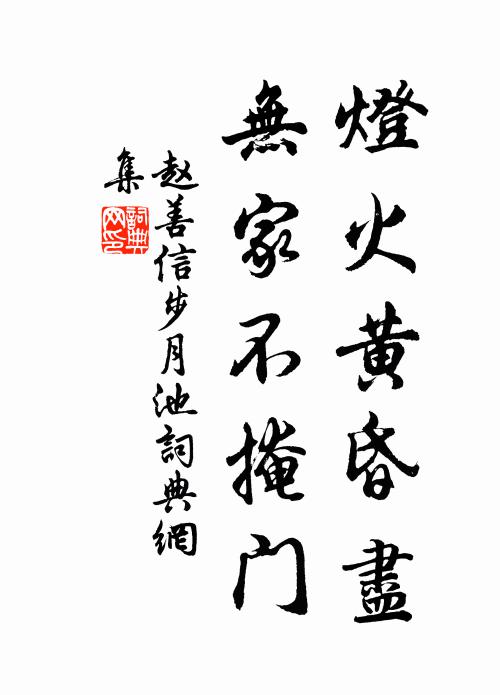 燈火黄昏盡
無家不掩门
赵善信步月池詞典網
集
詞典
网印